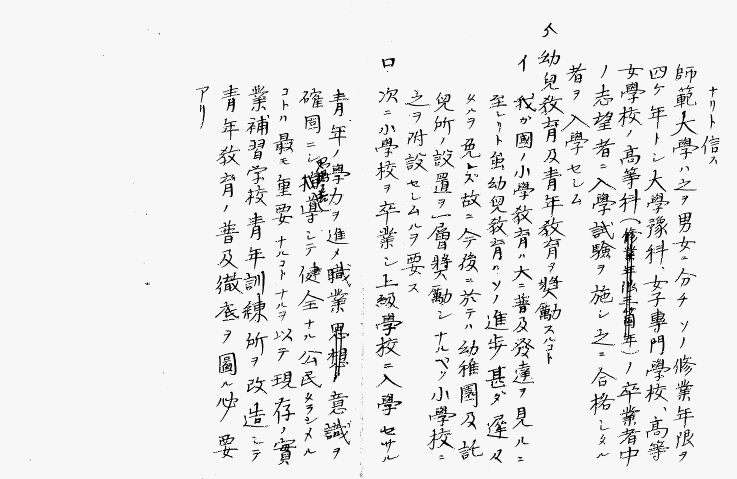 ナリト信ス
師範大學ハ之ヲ男女ニ分チソノ修業年限ヲ
四ケ年トシ大學豫科、女子專門學校、高等
女學校ノ高等科(修業年限三箇年)ノ卒業者中
ノ志望者ニ入學試驗ヲ施シ之ニ合格シタル
者ヲ入學セシム
幼兒教育及青年教育ヲ獎勵スルコト
イ 我ガ國ノ小學教育ハ大ニ普及發達ヲ見ルニ
至レリト虽幼兒教育ハソノ進歩甚ダ遲々
タルヲ免レズ故ニ今後ニ於テハ幼稚園及託
兒所ノ設置ヲ一層獎勵シナルベク小學校ニ
之ヲ附設セシムルヲ要ス
ロ 次ニ小學校ヲ卒業シ上級學校ニ入學セザル
青年ノ學力ヲ進メ職業意識ヲ
確固ニシ導シテ健全ナル公民タラシメル
コトハ最モ重要ナルコトナルヲ以テ現存ノ實
業補習学校青年訓練所ヲ改造シテ
青年教育ノ普及徹底ヲ圖ル必要
アリ